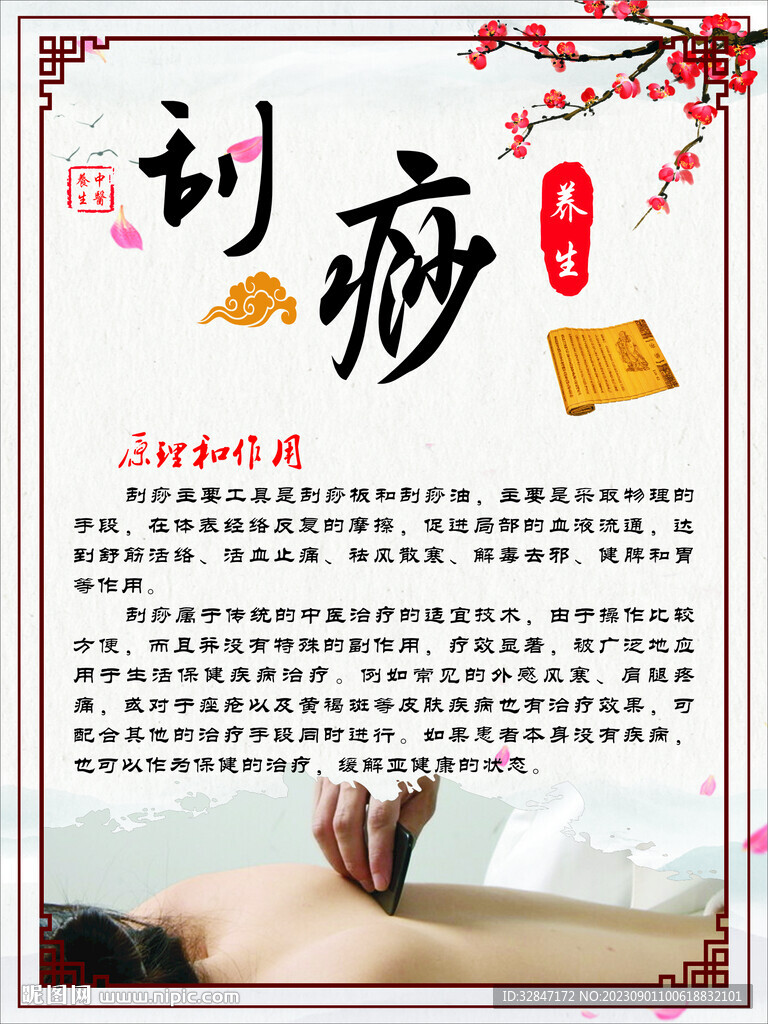 刮痧
中醫
養生
养生
原理和作用
刮痧主要工具是刮痧板和刮痧油，主要是采取物理的
手段，在体表经络反复的摩擦，促进局部的血液流通，达
到舒筋活络、活血止痛、祛风散寒、解毒去邪、健脾和胃
等作用。
刮痧属于传统的中医治疗的适宜技术，由于操作比较
方便，而且并没有特殊的副作用，疗效显著，被广泛地应
用于生活保健疾病治疗。例如常见的外感风寒、肩腿疼
痛，或对于痤疮以及黄褐斑等皮肤疾病也有治疗效果，可
配合其他的治疗手段同时进行。如果患者本身没有疾病，
也可以作为保健的治疗，缓解亚健康的状态。
昵图网 www.nipic.com
ID:32847172 NO:20230901100618832101